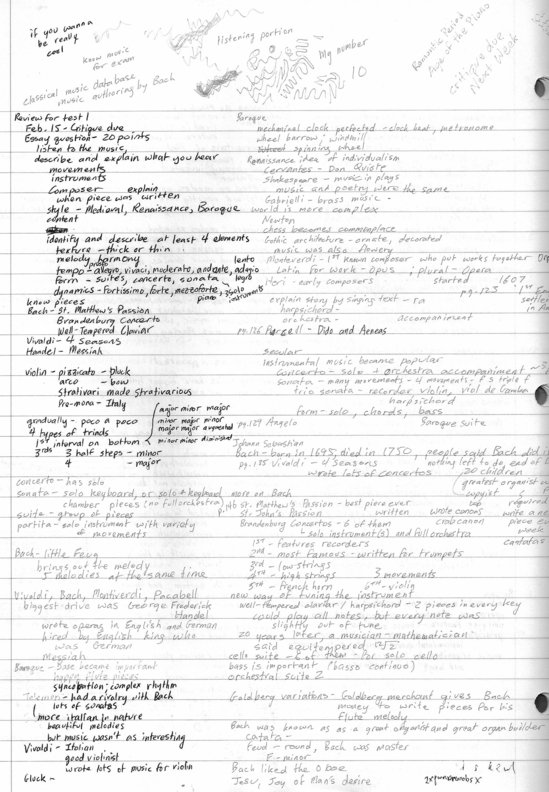 if you wanna
be really
cool
know music
for exam
classical music database
music authoring by Bach
listening portion
My number
10
Romantic Period
Age of the Piano
Critique due
Next Week
Review for test 1
Feb. 15 - Critique due
Essay question - 20 points
listen to the music,
describe and explain what you hear
movements
instruments
Composer explain
when piece was written
style - Medieval, Renaissance, Baroque
content
identify and describe at least 4 elements
texture - thick or thin
melody harmony
tempo - allegro, vivaci, moderato, andante, adagio
presto
lento
largo
form - suites, concerto, sonata
dynamics - fortissimo, forte, mezzoforte, piano
solo
instruments
know pieces
Bach - St. Matthew's Passion
Brandenburg Concerto
Well-Tempered Claviar
Vivaldi - 4 Seasons
Handel - Messiah
violin - pizzicato - pluck
arco - bow
Strativari made Strativarious
Italy
gradually - poco a poco
4 types of triads
1st interval on bottom
3rds 3 half steps - minor
4 - major
major minor major
minor minor minor
major major augmented
minor minor diminished
concerto - has solo
sonata - solo keyboard, or solo + keyboard
chamber pieces (no full orchestra)
suite - group of pieces
partita - solo instrument with variaty
of movements
Bach - little Feug
brings out the melody
5 melodies at the same time
Vivaldi, Bach, Montiverdi, Pacabell
biggest drive was George Frederick
Handel
wrote operas in English and German
hired by English king who
was German
Messiah
Baroque - Base became important
happy flute pieces
syncopation; complex rhythm
Teleman - had a rivalry with Bach
lots of sonatas
more italian in nature
beautiful melodies
but music wasn't as interesting
Vivaldi - Italian
good violinist
wrote lots of music for violin
Gluck -
Baroque
mechanical clock perfected - clock beat, metronome
wheel barrow; windmill
spinning wheel
Renaissance idea of individualism
Cervantes - Don Quiote
Shakespeare - music in plays
music and poetry were the same
Gabrielli - brass music -
world is more complex
Newton
chess becomes commonplace
Gothic architecture - ornate, decorated
music was also flowery
Monteverdi - 1st known composer who put works together
Latin for work - Opus ; plural - Opera
Peri - early composers started 1607
pg. 123
explain story by singing text - ra
harpsichord -
orchestra - accompaniment
pg. 126 Purcell - Dido and Aeneas
secular
instrumental music became popular
concerto - solo + orchestra accompaniment
sonata - many movements - 4 movements - f s triple f
trio sonata - recorder, violin, viol de Gamba
harpsichord
form - solo, chords, bass
pg. 129 Angelo Baroque suite
Johanna Sebastian
Bach - born in 1695, died in 1750, people said Bach did it
pg. 135 Vivaldi - 4 Seasons nothing left to do, end of
wrote lots of concertos 20 children
greatest organist
more on Bach
146 St. Matthew's Passion - best piece ever
St. John's Passion written
wrote canons
crab canon
required
write a new
piece every
week
cantatas
Brandenburg Concertos - 6 of them
solo instrument(s) and full orchestra
1st - features recorders
2nd - most famous - written for trumpets
3rd - low strings
4th - high strings 3 movements
5th - French horn 6th - violin
new way of tuning the instrument
well-tempered claviar / harpsichord - 2 pieces in every key
could play all notes, but every note was
slightly out of tune
20 years later, a musician-mathematician
said equitempered
cello suite - 6 of them - for solo cello
bass is important (basso continuo)
orchestral suite 2
Goldberg variations - Goldberg merchant gives Bach
money to write pieces for his
flute melody
Bach was known as a great organist and great organ builder
catata -
feud - round, Bach was master
F-minor
Bach liked the Oboe
Jesu, Joy of Man's desire